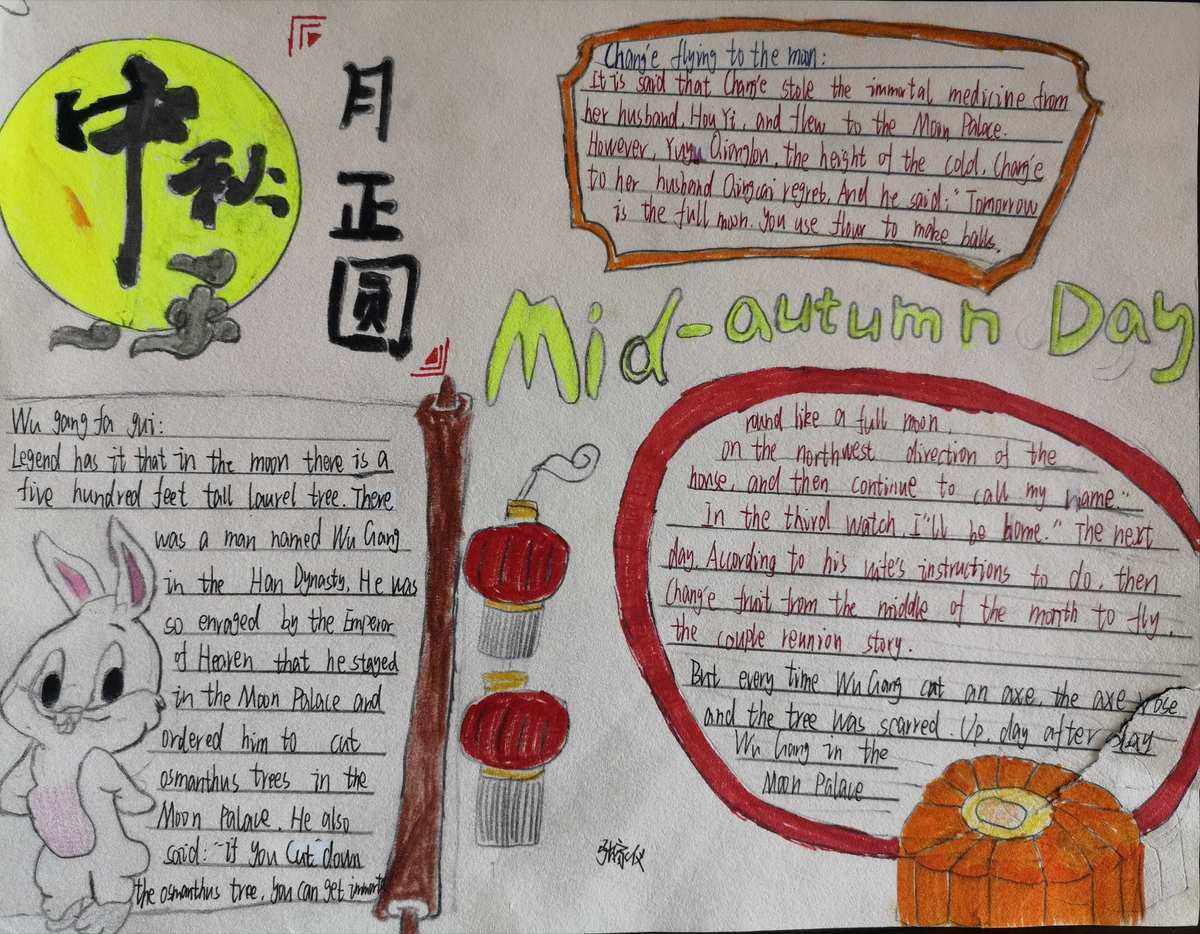 中秋
月正圆
Chang'e flying to the moon:
It is said that Chang'e stole the immortal medicine from
her husband, Hou Yi, and flew to the Moon Palace.
However, Yuyu Qionglou, the height of the cold, Chang'e
to her husband Qingcai regret, And he said: "Tomorrow
is the full moon. You use flour to make balls,
Mid-autumn Day
Wu gang fa gui:
Legend has it that in the moon there is a
five hundred feet tall laurel tree. There
was a man named Wu Gang
in the Han Dynasty, He was
so enraged by the Emperor
of Heaven that he stayed
in the Moon Palace and
ordered him to cut
osmanthus trees in the
Moon Palace. He also
said: "if you cut down
the osmanthus tree, you can get
round like a full moon,
on the northwest direction of the
house, and then continue to call my name."
In the third watch, I'll be home." The next
day, According to his wife's instructions to do, then
Chang'e fruit from the middle of the month to fly,
the couple reunion story.
But every time Wu Gang cut an axe, the axe rose
and the tree was scarred. Up, day after day
Wu Gang in the
Moon Palace